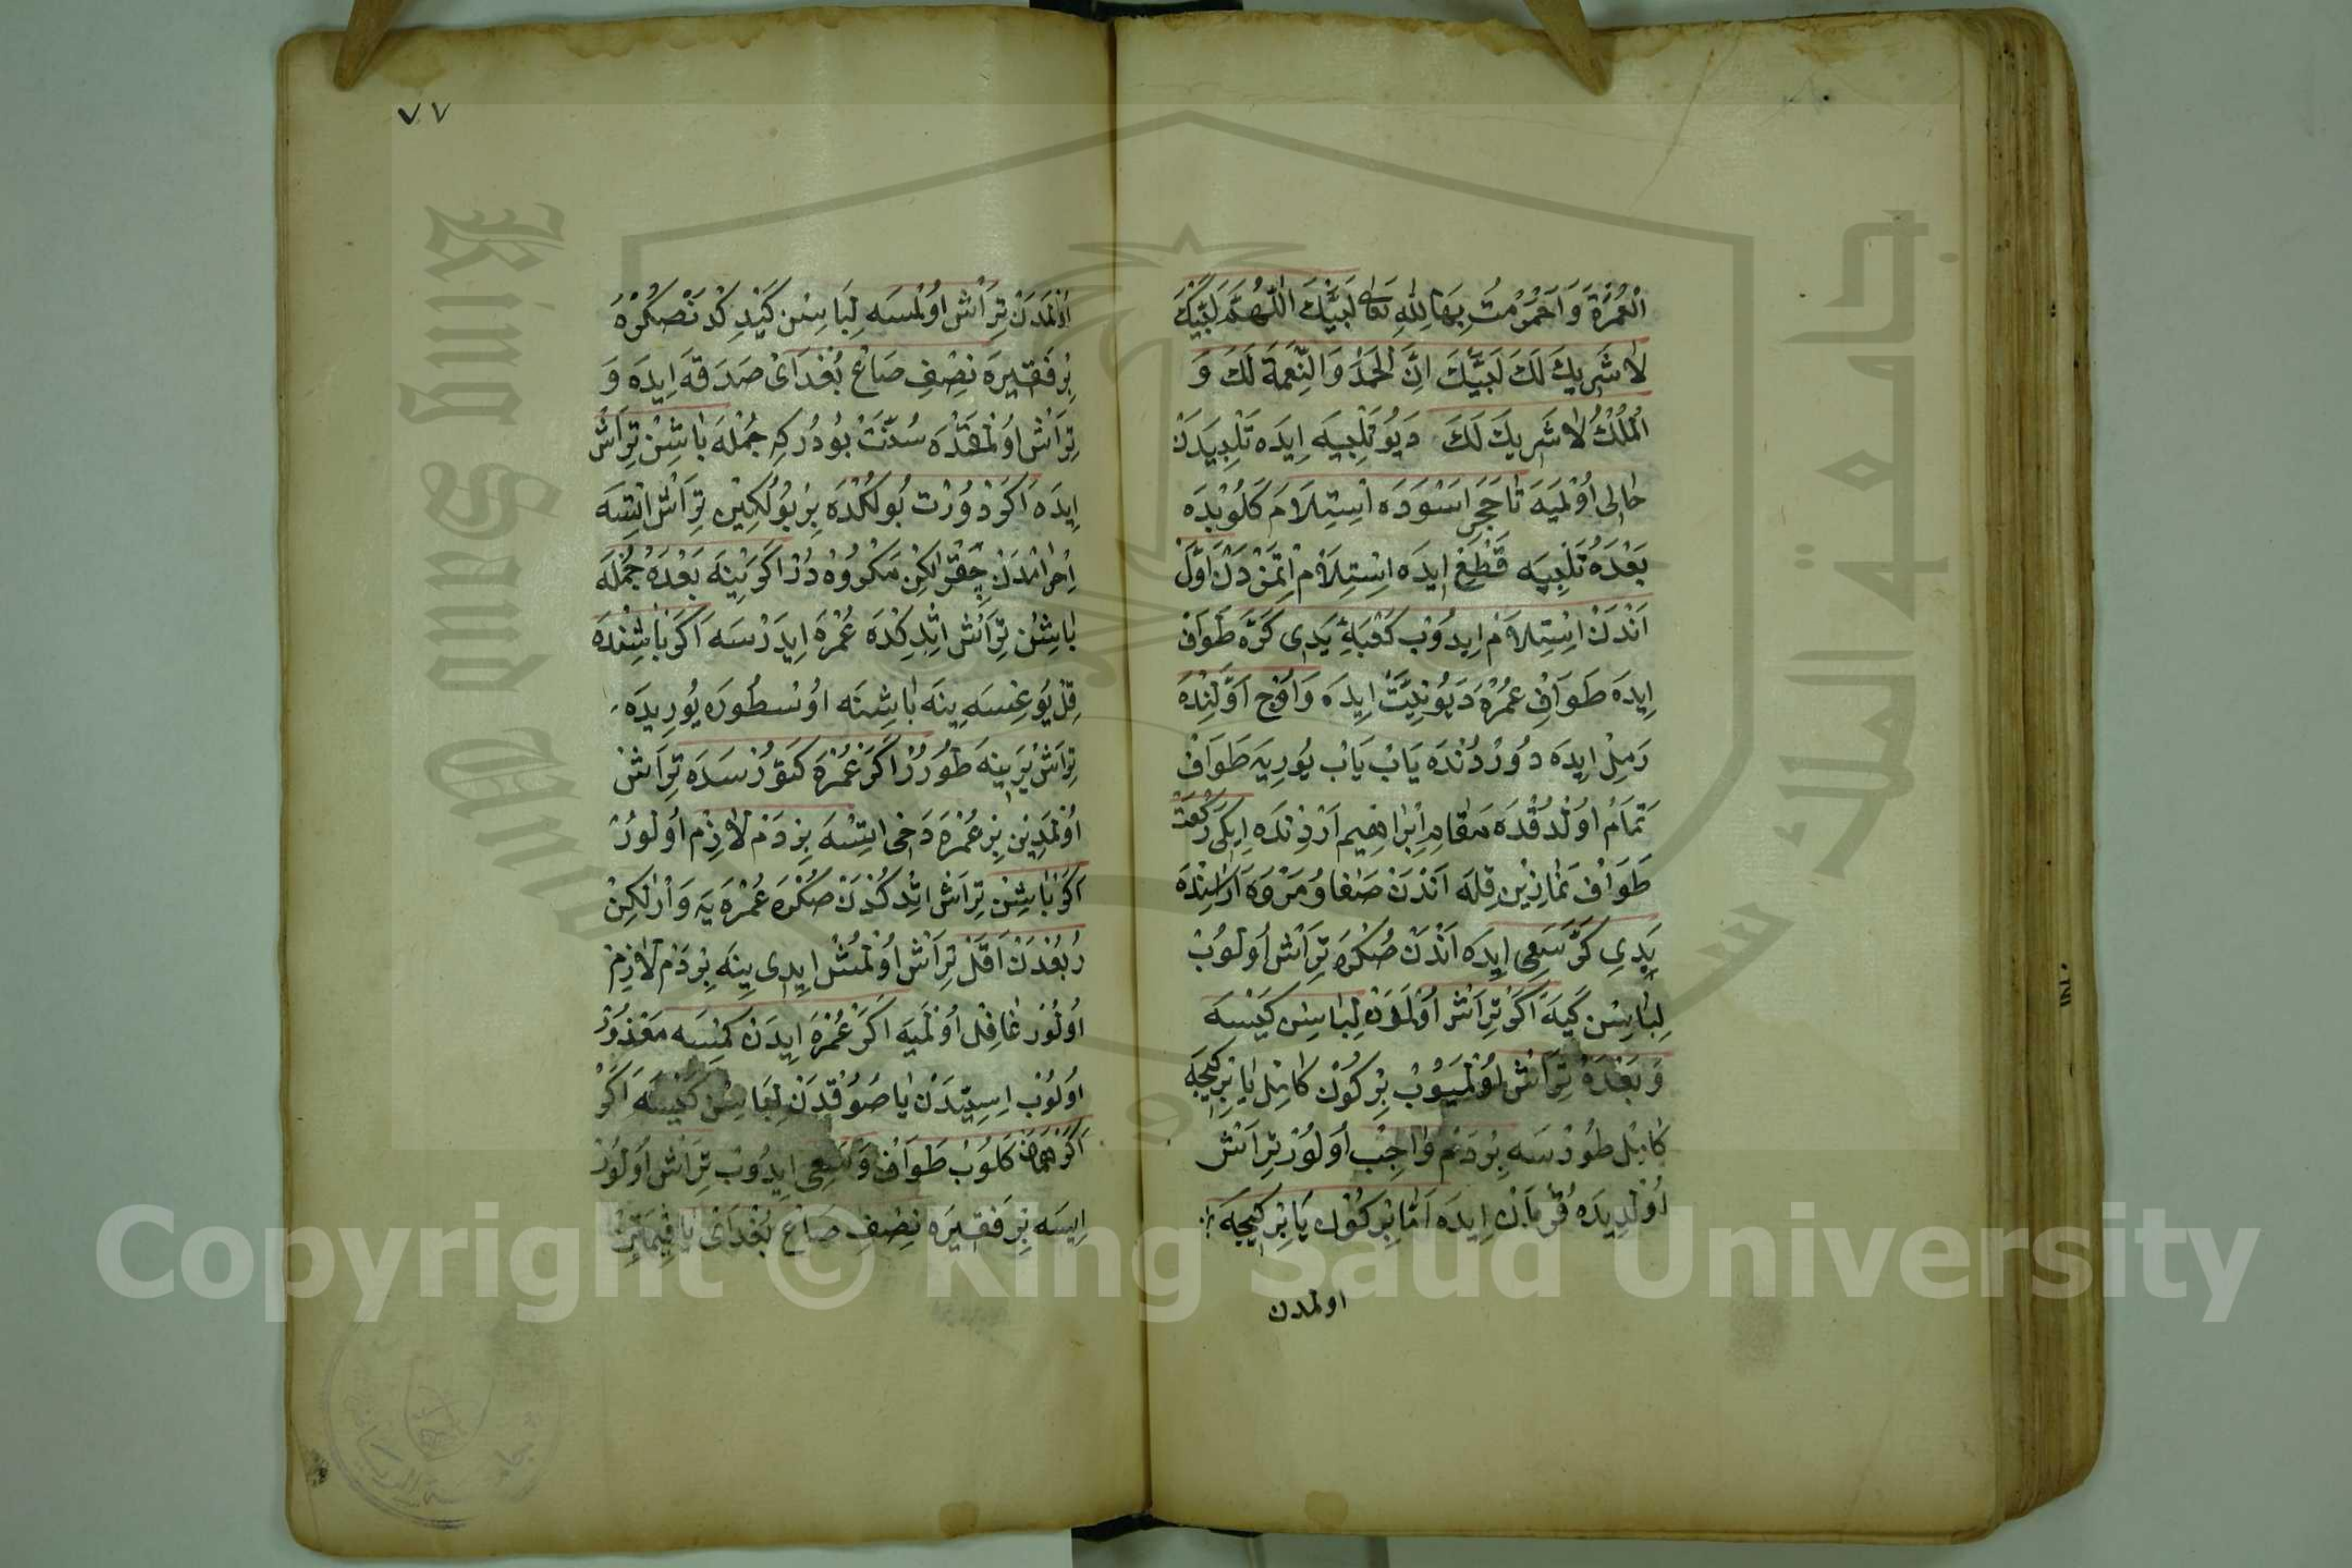 الْعُمْرَةَ وَاَحْرَمْتُ بِهَا لِلّٰهِ تعالى لَبَّيْكَ اَللّٰهُمَّ لَبَّيْكَ
لَا شَرِيكَ لَكَ لَبَّيْكَ اِنَّ الْحَمْدَ وَالنِّعْمَةَ لَكَ وَ
الْمُلْكُ لَا شَرِيكَ لَكَ دَيُو تَلْبِيَه اِيدَه تَلْبِيَدَنْ
خَالِى اُوْلْمَيَه تَا حَجَرِ اَسْوَدَه اِسْتِلَامَ كَلُوبْدَه
بَعْدَهُ تَلْبِيَه قَطْعْ اِيدَه اِسْتِلَامْ اِتْمَزْدَنْ اَوَّلْ
اَنْدَنْ اِسْتِلَامْ اِيدُوبْ كَعْبَه يِ يَدِى كَرَّه طَوَافْ
اِيدَه طَوَافِ عُمْرَه دَيُو نِيَّتْ اِيدَه وَاُوچْ اَوَّلِنْدَه
رَمِلْ اِيدَه دُورْدُنْدَه يَابْ يَابْ يُورِيَه طَوَافْ
تَمَامْ اُولْدُقْدَه مَقَامِ اِبْرَاهِيمْ اَرْدِنْدَه اِيكِى رَكْعَتْ
طَوَافْ نَمَازِينْ قِلَه اَنْدَنْ صَفَا وُ مَرْوَه اَرَاسِنْدَه
يَدِى كَرَّه سَعِى اِيدَه اَنْدَنْ صُكْرَه تِرَاشْ اُولُوبْ
لِبَاسِنْ كَيَه اَكَرْ تِرَاشْ اُولْمَدَنْ لِبَاسِنْ كَيْسَه
وَبَعْدَهُ تِرَاشْ اُولْمَيُوبْ بِرْ كُونْ كَامِلْ يَا بِرْ كِيجَه
كَامِلْ طُورْسَه بِرْ دَمْ وَاجِبْ اُولُورْ تِرَاشْ
اُولْدِيدَه قُرْبَانْ اِيدَه اَمَّا بِرْ كُونْ يَا بِرْ كِيجَه
اولمدن
٧٧
اُولْمَدَنْ تِرَاشْ اُولْمسَه لِبَاسِنْ كَيْدِكْدَنْ صُكْرَه
بِرْ فَقِيرَه نِصْفِ صَاعْ بُغْدَاىْ صَدَقَه اِيدَه وَ
تِرَاشْ اُولْمَقْدَه سُنَّتْ بُودُرْ كِه جُمْلَه بَاشِنْ تِرَاشْ
اِيدَه اَكَرْ دُورْتْ بُولُكْدَه بِرْ بُولُكِينْ تِرَاشْ اِتسَه
اِحْرَامْدَنْ چِقَرْ لٰكِنْ مَكْرُوهْدُرْ اَكَرْ يِنَه بَعْدَهُ جُمْلَه
بَاشِنْ تِرَاشْ اِتْدِكْدَه عُمْرَه اِيدَرْسَه اَكَرْ بَاشِنْدَه
قِلْ يُوغِسَه يِنَه بَاشِنَه اُوسْطُورَه يُورِيدَه
تِرَاشْ يَرِينَه طُورُرْ اَكَرْ عُمْرَه كَتُورْسَدَه تِرَاشْ
اُولْمَدِينْ بِرْ عُمْرَه دَخِى اِتسَه بِرْ دَمْ لَازِمْ اُولُورْ
اَكَرْ بَاشِنْ تِرَاشْ اِتْدِكْدَنْ صُكْرَه عُمْرَه يَه وَارْ لٰكِنْ
رُبُعْدَنْ اَقَلْ تِرَاشْ اُولْمُشْ اِيدِى يِنَه بِرْ دَمْ لَازِمْ
اُولُورْ غَافِلْ اُولْمَيَه اَكَرْ عُمْرَه اِيدَنْ كِمْسَه مَعْذُورْ
اُولُوبْ اِسِيتْدَنْ يَا صَوُقْدَنْ لِبَاسِنْ كَيْسَه اَكَرْ
اَكَرْ هَمَانْ كَلُوبْ طَوَافْ وَسَعِى اِيدُوبْ تِرَاشْ اُولُورْ
اِيسَه بِرْ فَقِيرَه نِصْفِ صَاعْ بُغْدَاىْ يَا قِيمَتِنْ
Copyright © King Saud University
King Saud University
جامعة الملك سعود